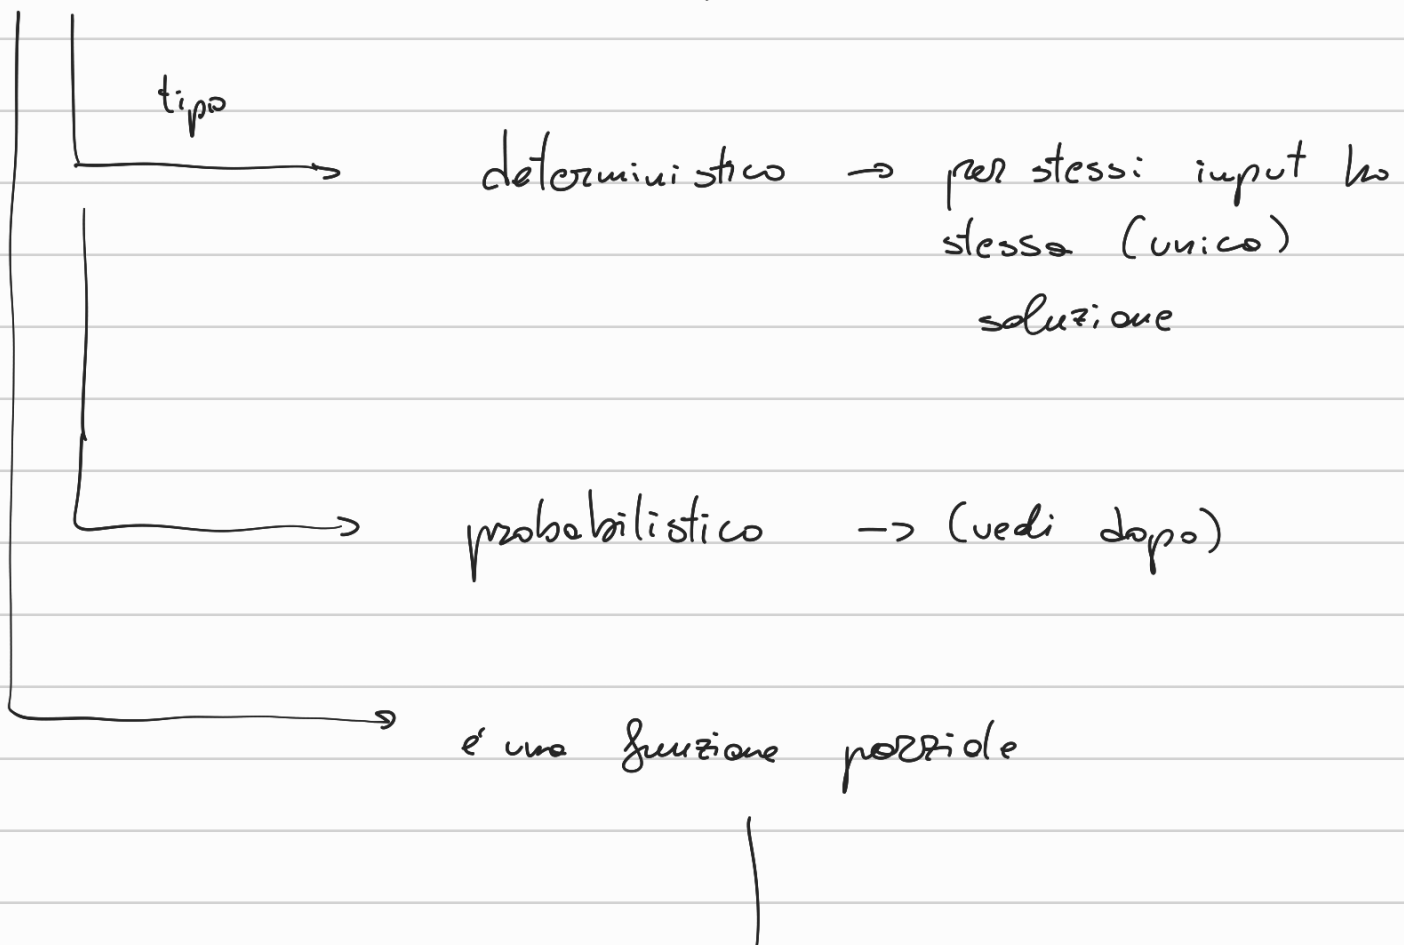 tipo
deterministico → per stessi input ho
stessa (unica)
soluzione
probabilistico -> (vedi dopo)
é una funzione parziale